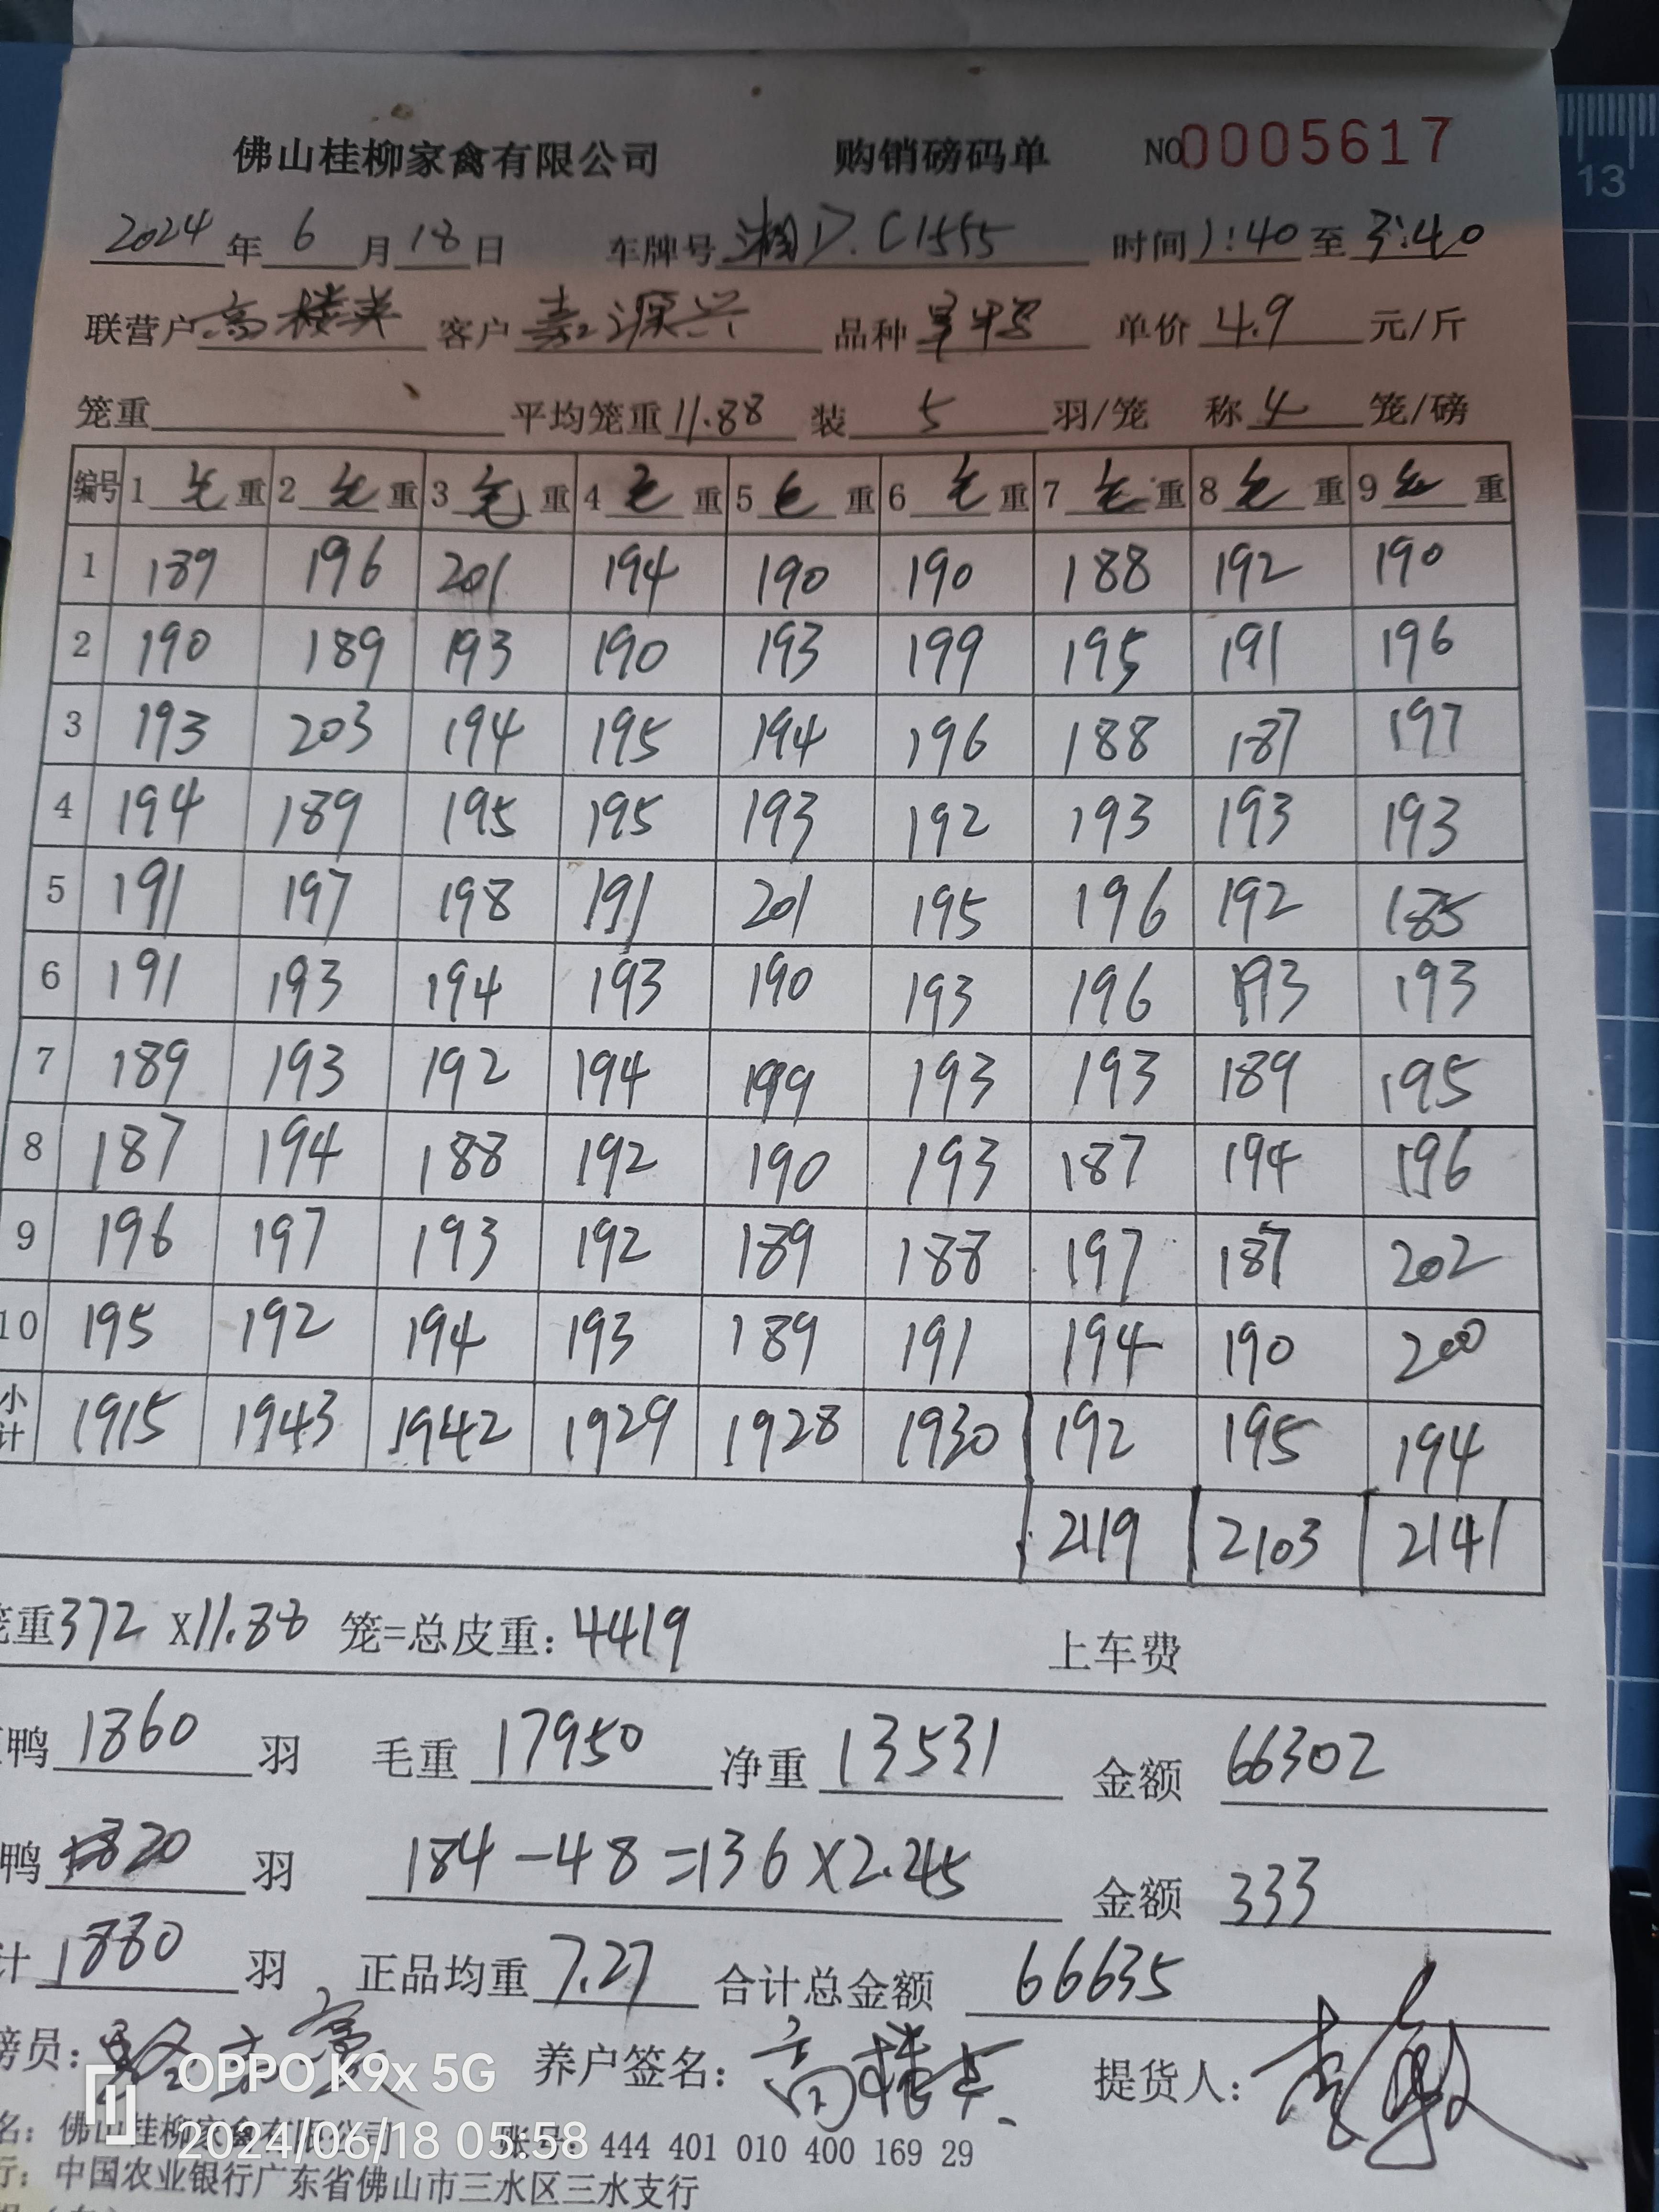 佛山桂柳家禽有限公司 购销磅码单 NO 0005617
2024 年 6 月 18 日 车牌号 湘D.C1555 时间 1:40 至 3:40
联营户 高楼英 客户 嘉源兴 品种 单价 4.9 元/斤
笼重 平均笼重 11.88 装 5 羽/笼 称 4 笼/磅
编号 1 毛 重 2 毛 重 3 毛 重 4 毛 重 5 毛 重 6 毛 重 7 毛 重 8 毛 重 9 毛 重
1 189 196 201 194 190 190 188 192 190
2 190 189 193 190 193 199 195 191 196
3 193 203 194 195 194 196 188 187 197
4 194 189 195 195 193 192 193 193 193
5 191 197 198 191 201 195 196 192 185
6 191 193 194 193 190 193 196 193 193
7 189 193 192 194 199 193 193 189 195
8 187 194 188 192 190 193 187 194 196
9 196 197 193 192 189 188 197 187 202
10 195 192 194 193 189 191 194 190 200
小计 1915 1943 1942 1929 1928 1930 192 195 194
2119 2103 2141
笼重 372 X 11.88 笼=总皮重: 4419 上车费
鸭 1860 羽 毛重 17950 净重 13531 金额 66302
鸭 20 羽 184-48=136X2.45 金额 333
计 1880 羽 正品均重 7.27 合计总金额 66635
磅员: 养户签名: 提货人:
OPPO K9x 5G
名: 佛山桂柳家禽有限公司 账号: 444 401 010 400 169 29
2024/06/18 05:58
行: 中国农业银行广东省佛山市三水区三水支行